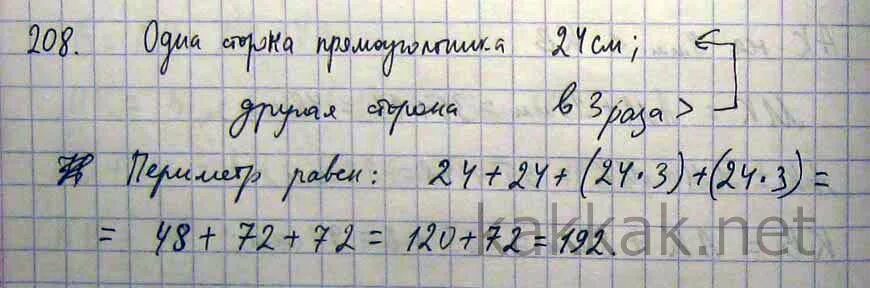 208. Одна сторона прямоугольника 24 см;
другая сторона в 3 раза >
Периметр равен: 24 + 24 + (24 · 3) + (24 · 3) =
= 48 + 72 + 72 = 120 + 72 = 192.
kakkak.net